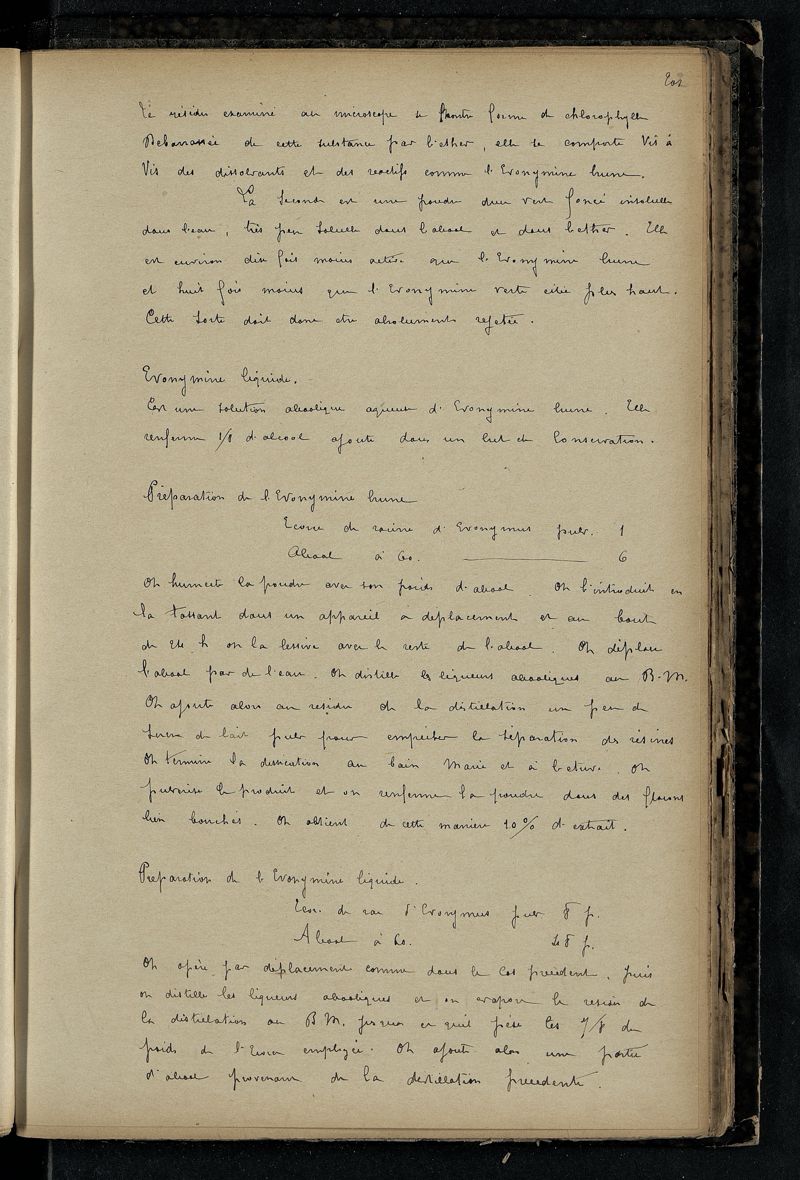 Le résidu examiné au microscope se montre formé de chlorophylle
Debarrassée de cette substance par l'ether, elle se comporte Vis à
Vis des dissolvants et des reactifs comme l'Evonymine brune.
La seconde est une poudre d'un vert foncé insoluble
dans l'eau, très peu soluble dans l'alcool et dans l'ether. Elle
est environ dix fois moins active que l'Evonymine brune
et huit fois moins que l'Evonymine verte citée plus haut.
Cette sorte doit donc etre absolument rejetée.
Evonymine liquide.
C'est une solution alcoolique aqueuse d'Evonymine brune. Elle
renferme 1/8 d'alcool ajouté dans un but de Conservation.
Préparation de l'Evonymine brune
Ecorce de racine d'Evonymus pulv. 1
Alcool à 60. 6
On humecte la poudre avec son poids d'alcool. On l'introduit en
la tassant dans un appareil à deplacement et au bout
de 24 h on la lessive avec le reste de l'alcool. On déplace
l'alcool par de l'eau. On distille les liqueurs alcooliques au B.M.
On ajoute alors au residu de la distillation un peu de
sucre de lait pulv pour empêcher la séparation des résines
On termine la dessication au bain Marie et à l'etuve. On
pulverise le produit et on renferme la poudre dans des flacons
bien bouchés. On obtient de cette maniere 20 % d'extrait.
Preparation de l'Evonymine liquide.
Ecor. de rac d'Evonymus pulv 8 p.
Alcool à 60. 48 p.
On opère par déplacement comme dans le Cas precedent. puis
on distille les liqueurs alcooliques et on evapore le residu de
la distillation au B.M. jusqu'a ce qu'il pèse les 7/8 du
poids de l'ecorce employée. On ajoute alors une partie
d'alcool provenant de la distillation precedente.